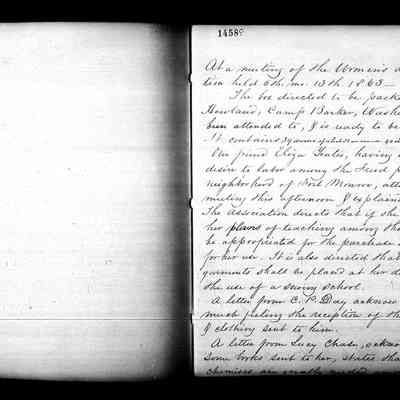 1458
At a meeting of the Women's
tion held 6th. mo. 13th 1863—
The box directed to be
Howland, Camp Barker,
been attended to, & is ready to be
It contains
Our friend Eliza Yeates, having
desire to labor among the freed
neighborhood of Fort Monroe,
meeting this afternoon &
The Association directs that if she
her plans of teaching among
be appropriated for the purchase
for her use. It is also directed that
garments shall be placed at her
the use of a sewing school.
A letter from C. P. Day
much feeling the reception of
& clothing sent to him.
A letter from Lucy Chase,
some books sent to her, states
chemises are greatly needed